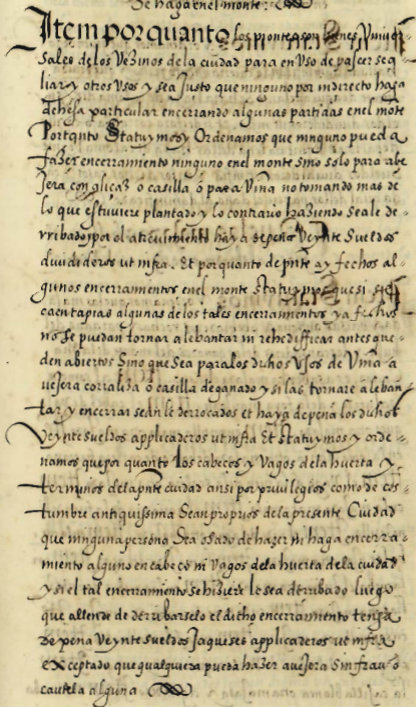 Se haga en el monte.
Item por quanto los montes son bienes Vniuer-
sales de los Vezinos de la ciudad para en Vso de pascer scq
liar y otros Vsos y sea Justo que ninguno por indirecto haga
dehesa particular encerrando algunas partidas en el mōte
Portqnto Statuymos y Ordenamos que ninguno pueda
fazer encerramiento ninguno en el monte sino solo para abe
Jera con glicaz o casilla o para Viña no tomando mas de
lo que estuuiere plantado y lo contrario haziendo se ale de-
rribado y por el atreuimiento haya de peña Veynte Sueldos
diuidideros ut infra. Et por quanto de pnte ay fechos al-
gunos encerramientos en el monte Statuymos que si se
caen tapias algunas de los tales encerramientos ya fechos
no se puedan tornar a lebantar ni rehedifficar antes que-
den abiertos Sino que Sea para los dichos Vsos de Viña a
uejera corraliza o casilla de ganado y si las tornare a leban
tar y encerrar sean le derrocados et haya de pena los dichos
Veynte sueldos applicaderos ut infra Et statuymos y orde-
namos que por quanto los cabeços y Vagos de la huerta y
terminos de la pnte ciudad ansi por priuilegios como de cos-
tumbre antiquissima Sean propios de la presente Ciudad
que ninguna persona Sea osado de hazer ni haga encerra-
miento alguno en cabeço ni Vagos de la huerta de la ciudad
y si el tal encerramiento se hiziere le sea derribado luego
que allende de derribarselo el dicho encerramiento tenga
de pena Veynte sueldos Jaqueses applicaderos ut infra
exceptado que qualquiera pueda hazer auejera Sin frau o
cautela alguna